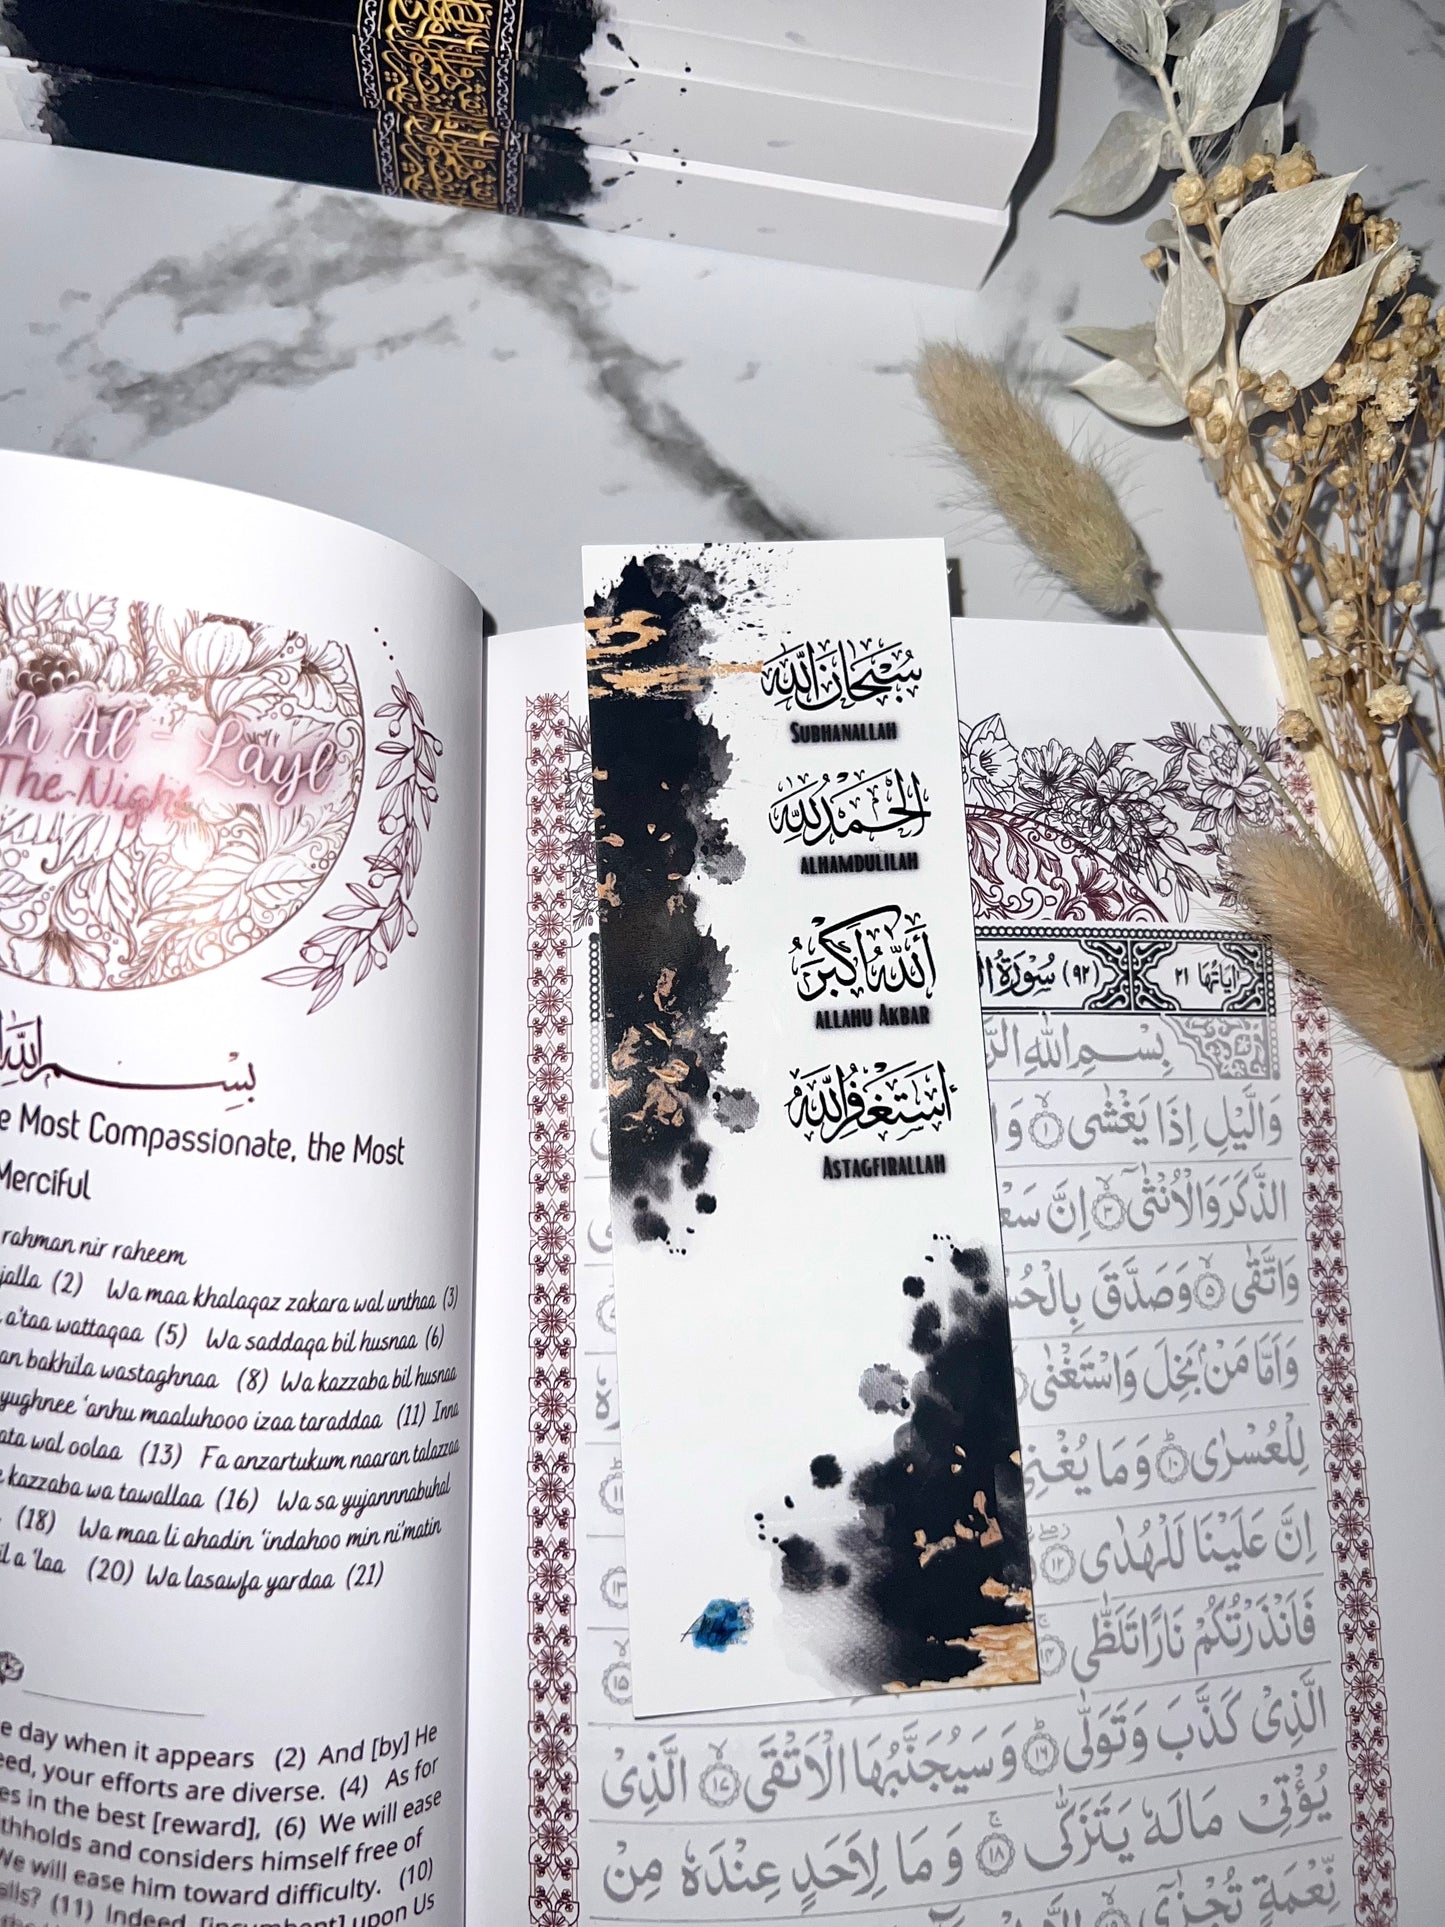 h Al - Layl
The Night
بِسْمِ اللَّهِ
e Most Compassionate, the Most
Merciful
rahman nir raheem
jalla (2) Wa maa khalaqaz zakara wal unthaa (3)
a'taa wattaqaa (5) Wa saddaqa bil husnaa (6)
an bakhila wastaghnaa (8) Wa kazzaba bil husnaa
yughnee 'anhu maaluhooo izaa taraddaa (11) Inna
ata wal oolaa (13) Fa anzartukum naaran talazzaa
kazzaba wa tawallaa (16) Wa sa yujannnabuhal
(18) Wa maa li ahadin 'indahoo min ni'matin
il a 'laa (20) Wa lasawfa yardaa (21)
e day when it appears (2) And [by] He
eed, your efforts are diverse. (4) As for
es in the best [reward], (6) We will ease
thholds and considers himself free of
We will ease him toward difficulty. (10)
alls? (11) Indeed, [incumbent] upon Us
سُبْحَانَ اللَّه
SUBHANALLAH
الْحَمْدُ لِلَّه
ALHAMDULILAH
اللَّهُ أَكْبَرُ
ALLAHU AKBAR
أَسْتَغْفِرُ اللَّه
ASTAGFIRALLAH
اٰيَاتُهَا ٢١ (٩٢) سُوْرَةُ
بِسْمِ اللّٰهِ
وَالَّيْلِ اِذَا يَغْشٰى ١ وَ
الذَّكَرَ وَالْاُنْثٰٓى ٣ اِنَّ
وَاتَّقٰى ٥ وَصَدَّقَ
وَاَمَّا مَنْۢ بَخِلَ وَاسْتَغْنٰى
لِلْعُسْرٰى ١٠ وَمَا يُغْنِىْ
اِنَّ عَلَيْنَا لَلْهُدٰى ١٢
فَاَنْذَرْتُكُمْ نَارًا تَلَظّٰى
الَّذِىْ كَذَّبَ وَتَوَلّٰى ١٦ وَسَيُجَنَّبُهَا الْاَتْقَى ١٧ الَّذِىْ
يُؤْتِىْ مَالَهٗ يَتَزَكّٰى ١٨ وَمَا لِاَحَدٍ عِنْدَهٗ مِنْ
نِّعْمَةٍ تُجْزٰٓى